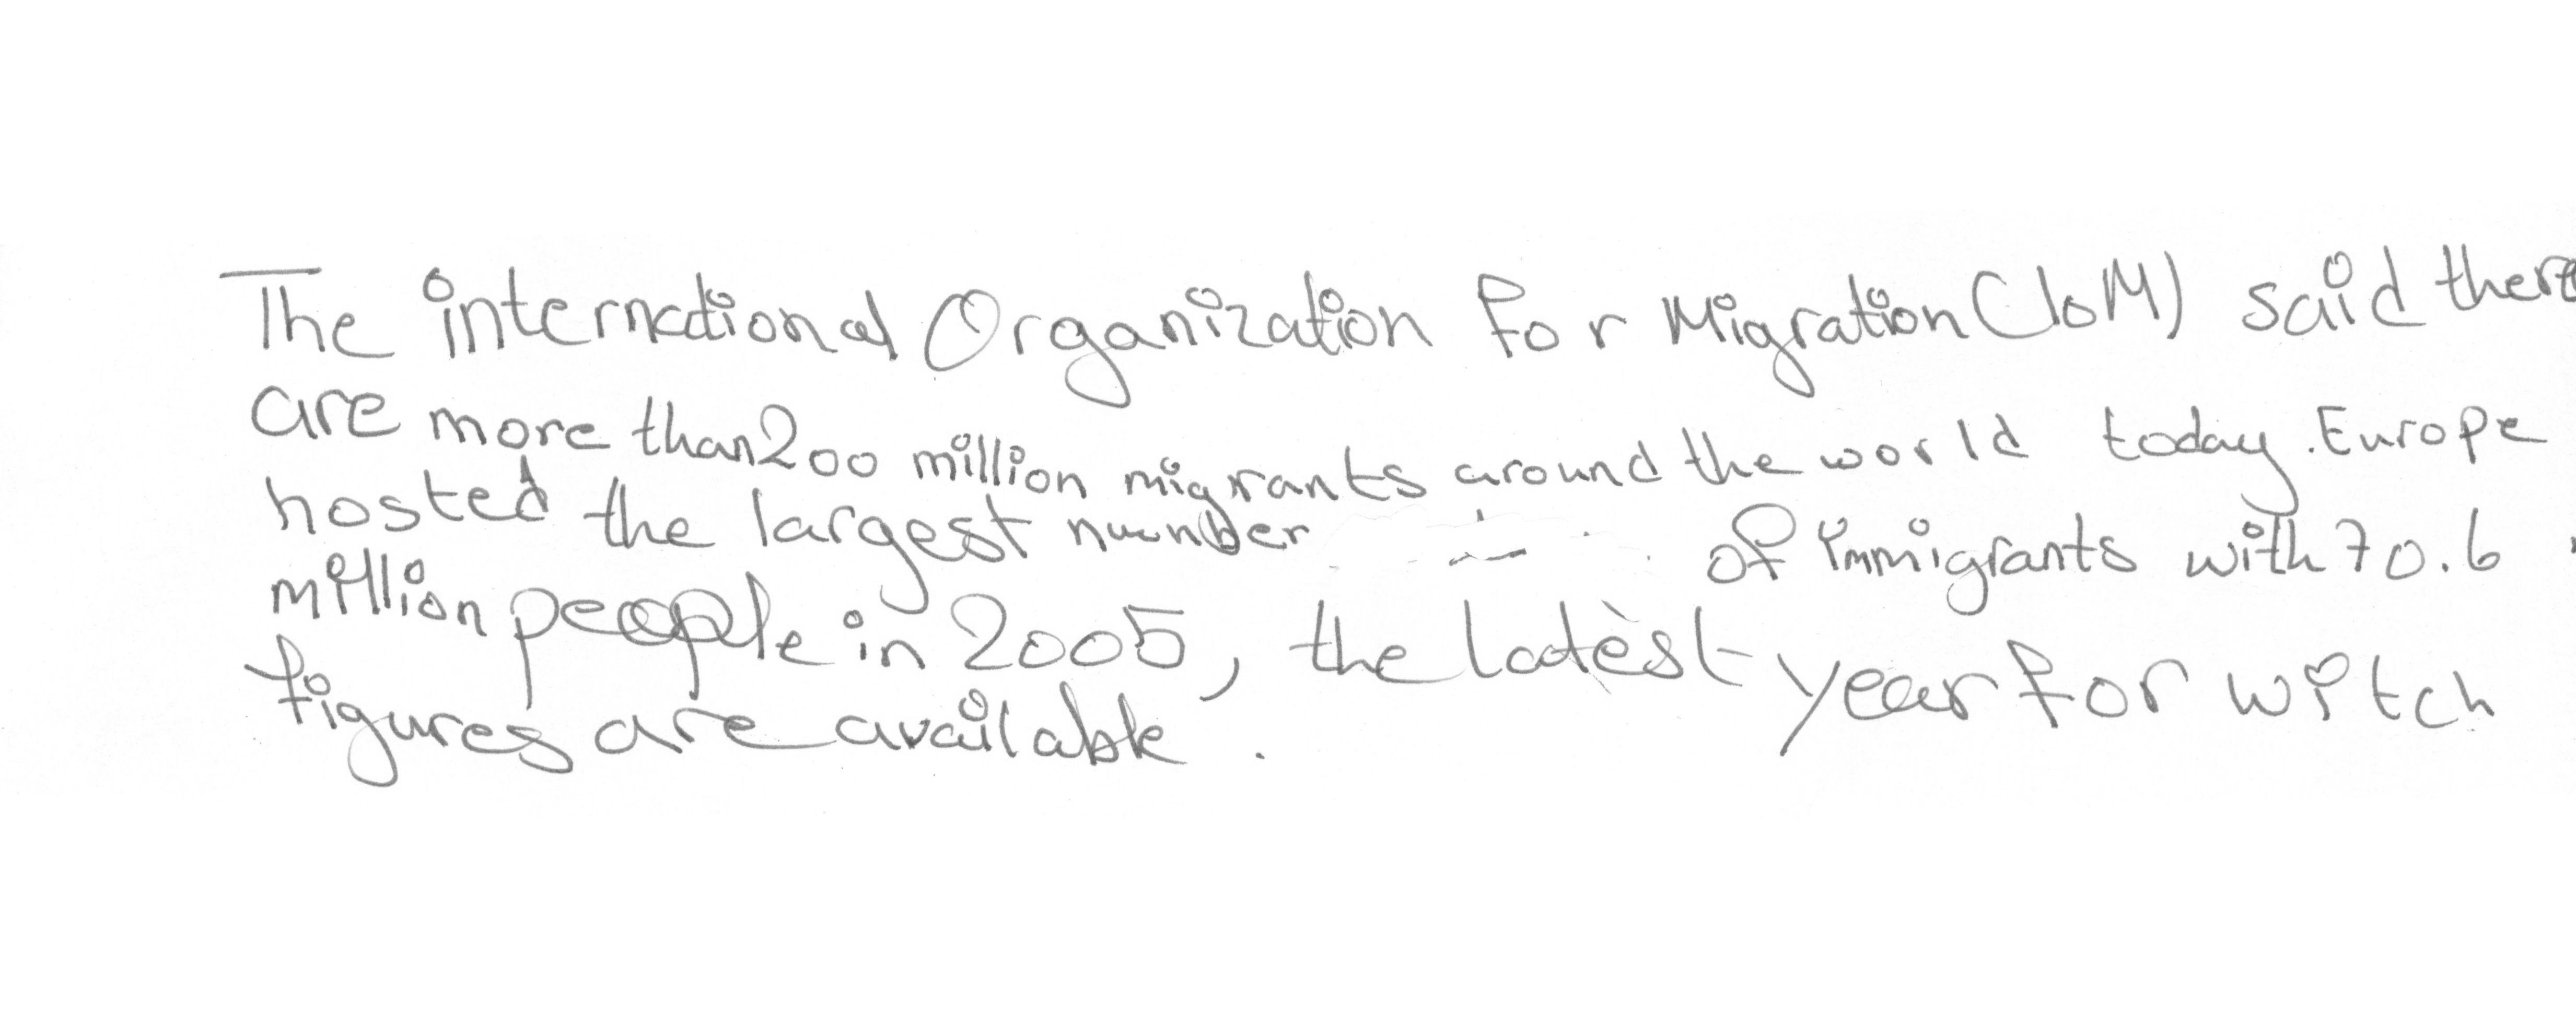 The international Organization for Migration (IoM) said there
are more than 200 million migrants around the world today. Europe
hosted the largest number of immigrants with 70.6
million people in 2005, the latest year for witch
figures are available.